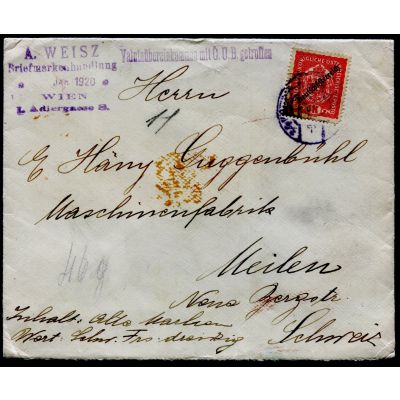 A. WEISZ
Briefmarkenhandlung
Jan. 1920
WIEN
I. Adlergasse 8.
Valutaübereinkommen mit Ö.U.B. getroffen
Herrn
11
E Häny Guggenbühl
Maschinenfabrik
Meilen
Neue Bergstr.
Schweiz
46g
Inhalt: Alte Marken
Wert: Schw. Frs: dreissig